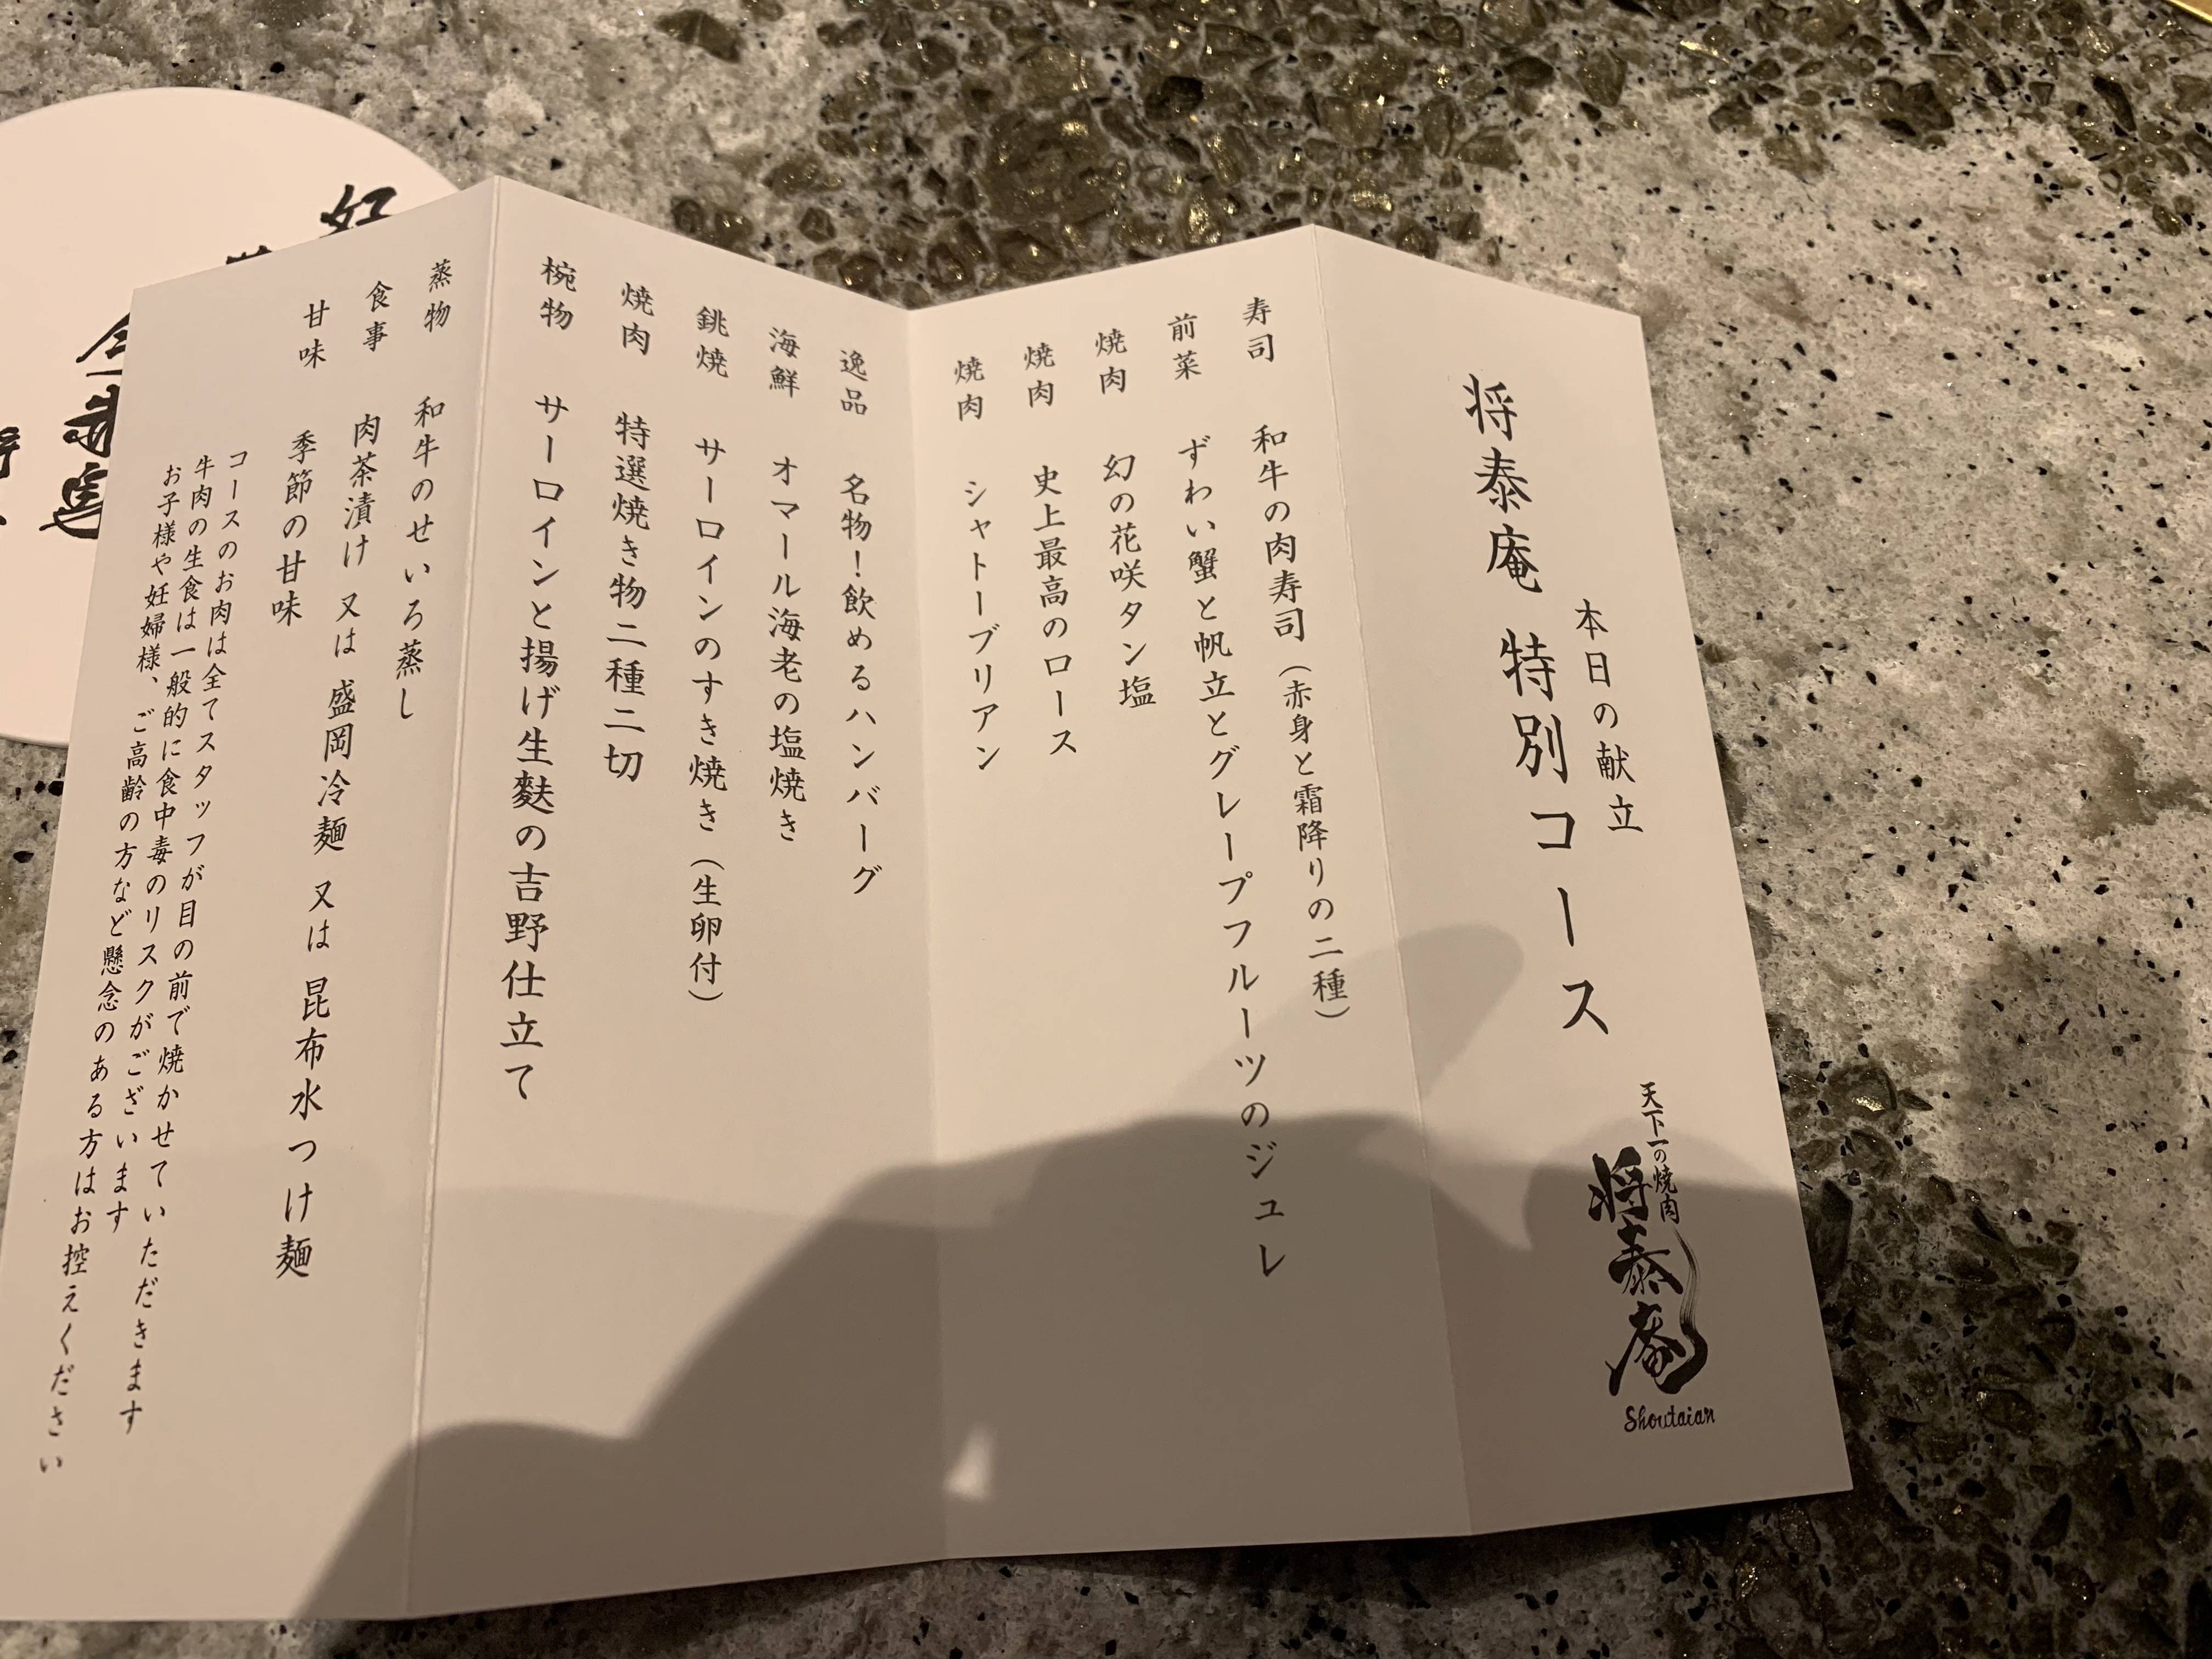 本日の献立
将泰庵 特別コース
天下一の焼肉
将泰庵
Shoutaian
寿司 和牛の肉寿司（赤身と霜降りの二種）
前菜 ずわい蟹と帆立とグレープフルーツのジュレ
焼肉 幻の花咲タン塩
焼肉 史上最高のロース
焼肉 シャトーブリアン
逸品 名物！飲めるハンバーグ
海鮮 オマール海老の塩焼き
銚焼 サーロインのすき焼き（生卵付）
焼肉 特選焼き物二種二切
椀物 サーロインと揚げ生麩の吉野仕立て
蒸物 和牛のせいろ蒸し
食事 肉茶漬け 又は 盛岡冷麺 又は 昆布水つけ麺
甘味 季節の甘味
コースのお肉は全てスタッフが目の前で焼かせていただきます
牛肉の生食は一般的に食中毒のリスクがございます
お子様や妊婦様、ご高齢の方など懸念のある方はお控えください